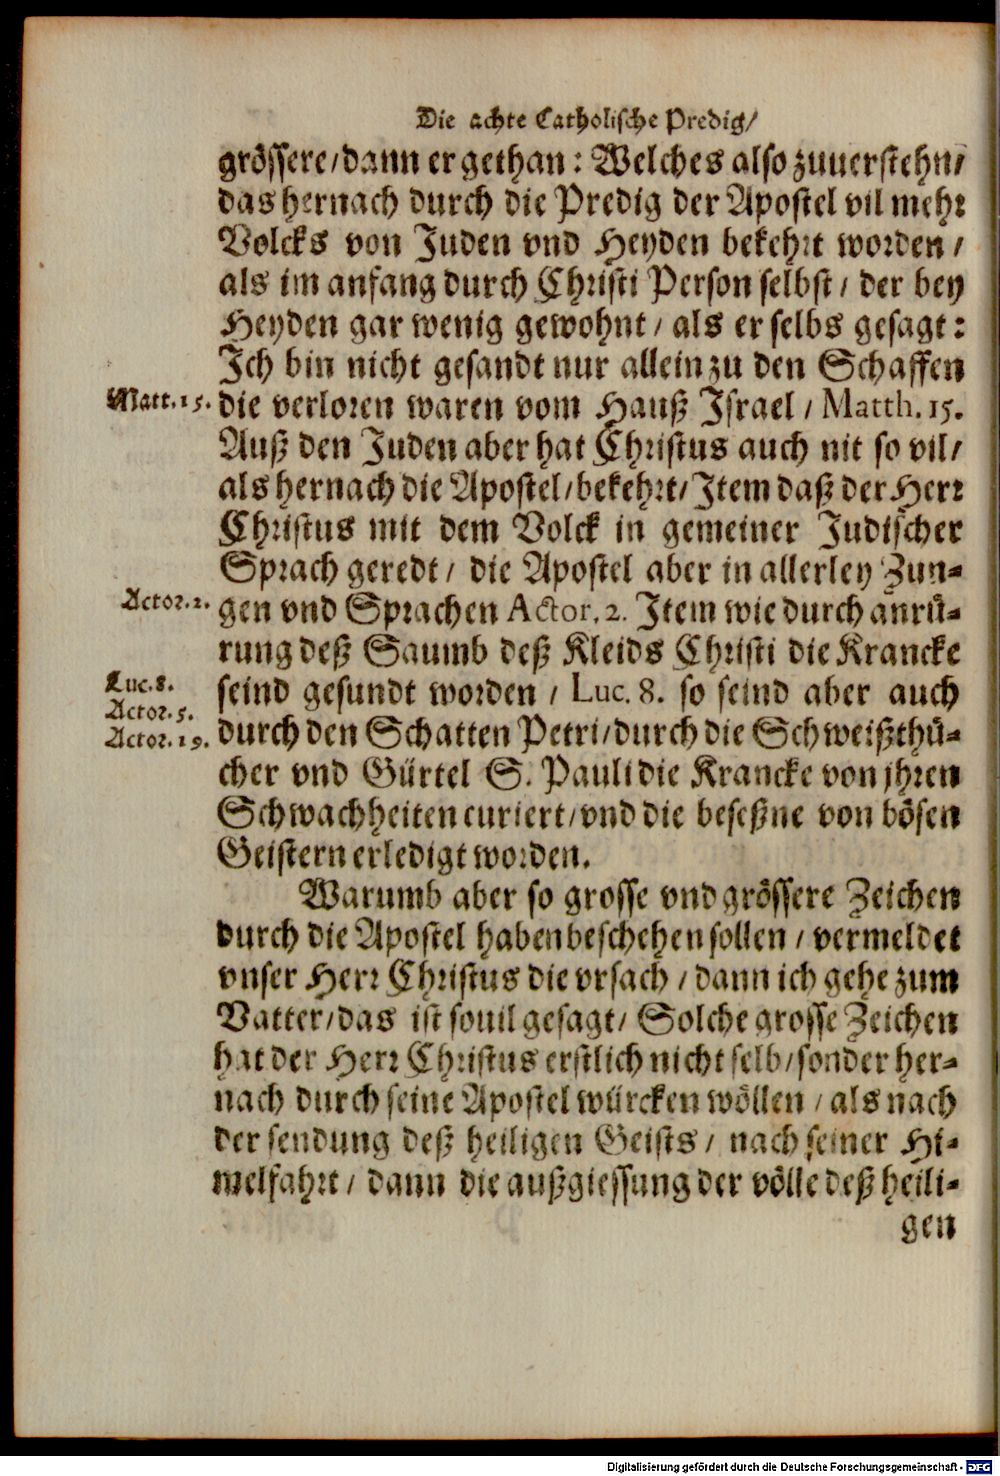 Die achte Catholische Predig/
grössere/dann er gethan: Welches also zuuerstehn/
das hernach durch die Predig der Apostel vil mehr
Volcks von Juden vnd Heyden bekehrt worden/
als im anfang durch Christi Person selbst/ der bey
Heyden gar wenig gewohnt/ als er selbs gesagt:
Ich bin nicht gesandt nur allein zu den Schaffen
Matt.15. die verloren waren vom Hauß Israel/ Matth. 15.
Auß den Juden aber hat Christus auch nit so vil/
als hernach die Apostel/bekehrt/Item daß der Herr
Christus mit dem Volck in gemeiner Judischer
Sprach geredt/ die Apostel aber in allerley Zun-
Actor.2. gen vnd Sprachen Actor. 2. Item wie durch anrü-
rung deß Saumb deß Kleids Christi die Krancke
Luc.8. seind gesundt worden/ Luc. 8. so seind aber auch
Actor.5.
Actor.19. durch den Schatten Petri/durch die Schweißthü-
cher vnd Gürtel S. Pauli die Krancke von jhren
Schwachheiten curiert/vnd die beseßne von bösen
Geistern erledigt worden.
Warumb aber so grosse vnd grössere Zeichen
durch die Apostel haben beschehen sollen/ vermeldet
vnser Herr Christus die vrsach/ dann ich gehe zum
Vatter/das ist souil gesagt/ Solche grosse Zeichen
hat der Herr Christus erstlich nicht selb/sonder her-
nach durch seine Apostel würcken wöllen/ als nach
der sendung deß heiligen Geists/ nach seiner Hi-
melfahrt/ dann die außgiessung der völle deß heili-
gen
Digitalisierung gefördert durch die Deutsche Forschungsgemeinschaft - DFG